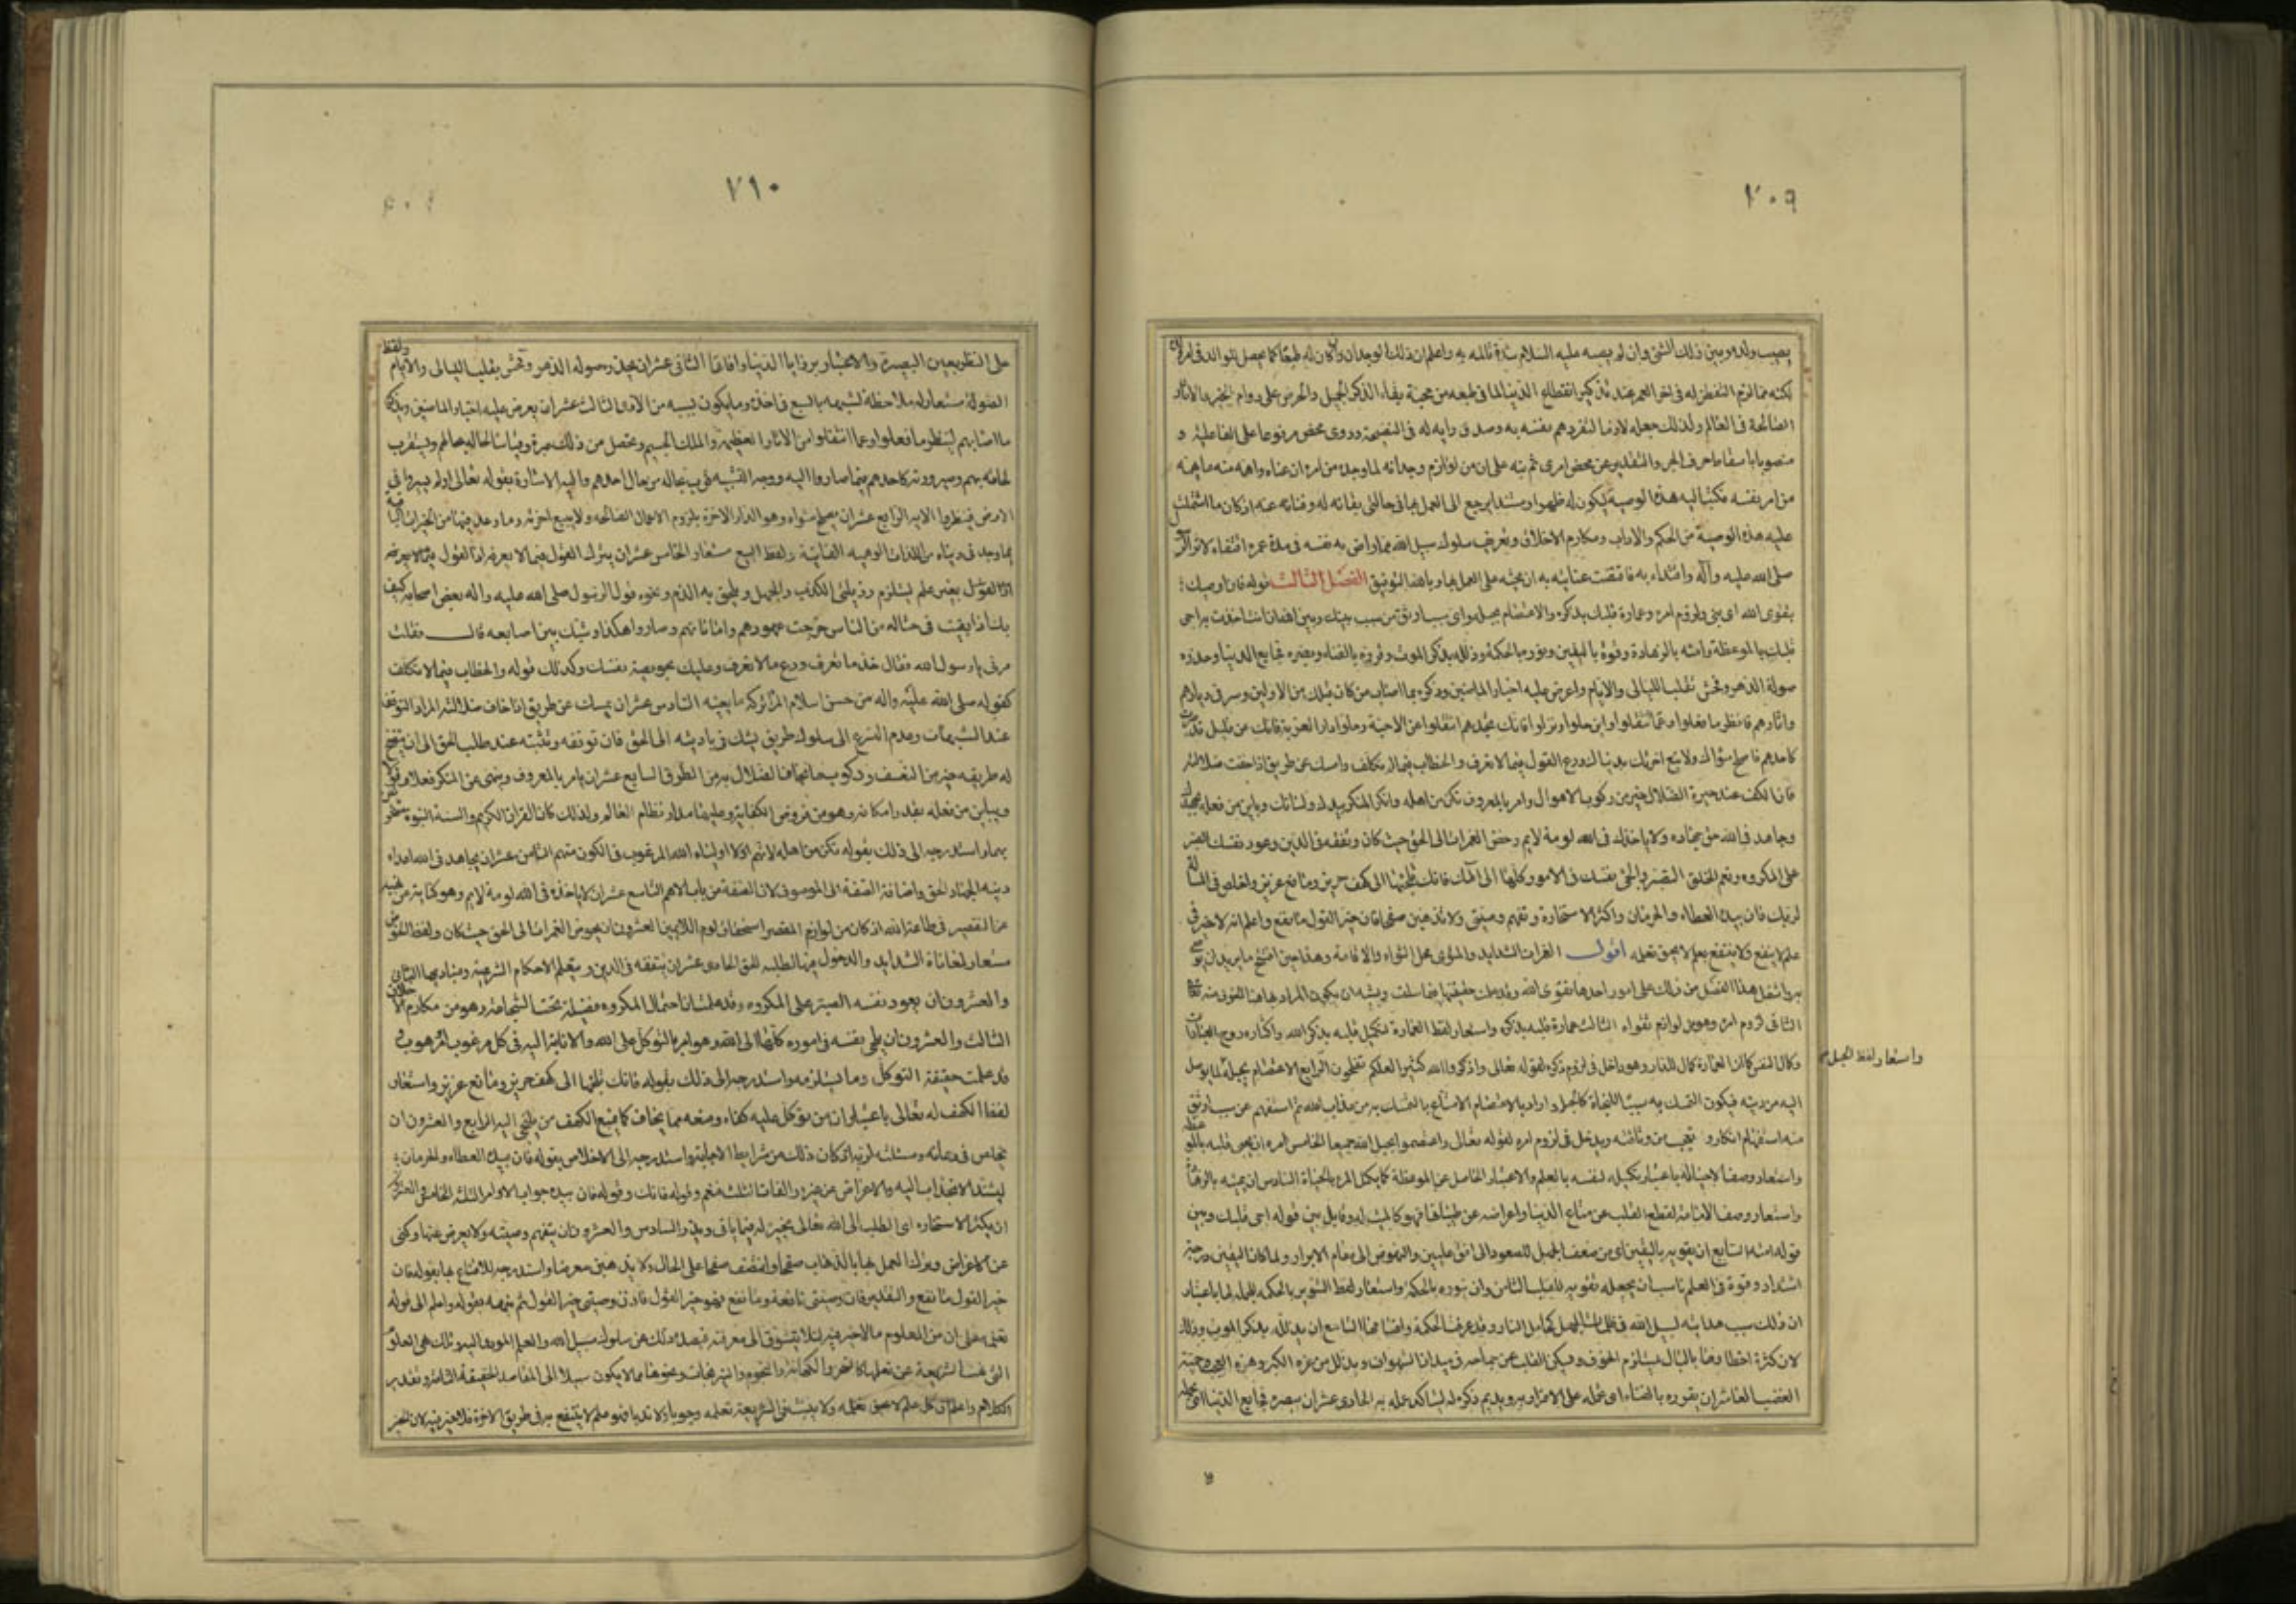 ٧٠٩
يصيب ولده وبين ذلك الشئ وان لم يصبه عليه السلام شدة تالمه به واعلم ان ذلك الوجدان وان كان له طبعا كما يحصل للوالد في امر
لكنه مما الزم التفطن له في اخر العمر عند تذكير انقطاع الدنيا لما في طبعه من محبة بقاء الذكر الجميل والحرص على دوام الخير والاثار
الصالحة في العالم ولذلك جعله لازما لتفردهم نفسه به وصدق رايه له في النصيحة وروى محض مرفوعا على الفاعلية و
منصوبا باسقاط حرف الجر والتقدير عن محض امرى ثم نبه على ان من لوازم وجدانه لما وجده من امره ان عناه واهمه منه ما يهمه
من امر نفسه مكتبا اليه هذه الوصية ليكون له ظهرا ومستندا يرجع الى العمل بها في حالتى بقائه له وفنائه عنه اذ كان ما اشتملت
عليه هذه الوصية من الحكم والاداب ومكارم الاخلاق وتعريف سلوك سبيل الله مما راض به نفسه في مدة عمره اقتفاء لاثر الرسول
صلى الله عليه وآله واقتداء به فاقتضت عنايته به ان يحثه على العمل بها وبالله التوفيق الفصل الثالث قوله فانى اوصيك
بتقوى الله اى بنى ولزوم امره وعمارة قلبك بذكره والاعتصام بحبله واى سبب اوثق من سبب بينك وبين الله ان انت اخذت به احى
قلبك بالموعظة وامته بالزهادة وقوه باليقين ونوره بالحكمة وذلله بذكر الموت وقرره بالفناء وبصره فجايع الدنيا وحذره
صولة الدهر وفحش تقلب الليالى والايام واعرض عليه اخبار الماضين وذكره بما اصاب من كان قبلك من الاولين وسر في ديارهم
واثارهم فانظر ما فعلوا وعما انتقلوا واين حلوا ونزلوا فانك تجدهم انتقلوا عن الاحبة وحلوا دار الغربة وكانك عن قليل قد صرت
كاحدهم فاصلح مثواك ولا تبع اخرتك بدنياك ودع القول فيما لا تعرف والخطاب فيما لا تكلف وامسك عن طريق اذا خفت ضلالته
فان الكف عند حيرة الضلال خير من ركوب الاهوال وامر بالمعروف تكن من اهله وانكر المنكر بيدك ولسانك وباين من فعله بجهدك
وجاهد في الله حق جهاده ولا ياخذك في الله لومة لايم وخض الغمرات الى الحق حيث كان وتفقه في الدين وعود نفسك الصبر
على المكروه ونعم الخلق التصبر والجئ نفسك في الامور كلها الى الهك فانك تلجئها الى كهف حريز ومانع عزيز واخلص في المسألة
لربك فان بيده العطاء والحرمان واكثر الاستخارة وتفهم وصيتى ولا تذهبن صفحا فان خير القول ما نفع واعلم انه لا خير في
علم لا ينفع ولا ينتفع بعلم لا يحق تعلمه اقول الغمرات الشدايد والمثوى محل الثواء والاقامة وهذا حين افتتح ما يريد ان يوصى
به واشتمل هذا الفصل من ذلك على امور احدها تقوى الله وقد علمت حقيقتها فيما سلف ويشبه ان يكون المراد هاهنا الخوف منه تعالى
الثانى لزوم امره وهو من لوازم تقواه الثالث عمارة قلبه بذكره واستعار لفظ العمارة لتكميل قلبه بذكر الله واكثاره روح العبادات
وكمال النفس كما ان العمارة كمال للدار وهو داخل في لزوم ذكره لقوله تعالى واذكروا الله كثيرا لعلكم تفلحون الرابع الاعتصام بحبله لما يوصل
واستعار لفظ الحبل
اليه من دينه فيكون التمسك به سببا للنجاة كالحبل واراد بالاعتصام الامتناع بالتمسك به من عذاب الله ثم استفهم عن سبب اوثق
منه استفهام انكار وتعجب من وثاقته ويدخل في لزوم امره لقوله تعالى واعتصموا بحبل الله جميعا الخامس امره ان يحيى قلبه بالموعظة
واستعار وصف الاحياء له باعتبار تكميله لنفسه بالعلم والاعتبار الحاصل عن الموعظة كما يكمل المرء بالحياة السادس ان يميته بالزهادة
واستعار وصف الاماتة لقطع القلب عن متاع الدنيا واعراضه عن طيباتها فهو كالميت له وقابل بين قوله احى قلبك وبين
قوله امته السابع ان يقويه باليقين اى من ضعف الجهل للصعود الى افق عليين والنهوض الى مقام الابرار ولما كان اليقين درجة
اشتداد وقوة في العلم ناسب ان يجعله تقوية للقلب الثامن وان ينوره بالحكمة واستعار لفظ التنوير بالحكمة للعلم لها باعتبار
ان ذلك سبب هدايته لسبيل الله في ظلمات الجهل كحامل النار وقد عرفت الحكمة واقسامها التاسع ان يذلله بذكر الموت وذلك
لان كثرة اخطارها بالبال يستلزم الخوف ويسكن القلب عن جماحه في ميدان الشهوات ويذلل من عزه الكبر وهزه العجب وحمية
الغضب العاشر ان يقرره بالفناء اى يحمله على الاقرار به ويديم ذكره له ليتاكد علمه به الحادى عشر ان يبصره فجايع الدنيا اى يحمله
٧١٠
على النظر بعين البصيرة والاعتبار برزايا الدنيا وافاتها الثانى عشر ان يحذره صولة الدهر وفحش تقلب الليالى والايام ولفظ
الصولة مستعار له ملاحظة لشبهه بالسبع في اخذه وما يكون بسببه من الاذى الثالث عشر ان يعرض عليه اخبار الماضين ويذكره
ما اصابهم لينظر ما فعلوا وعما انتقلوا من الاثار العظيمة والملك الجسيم ويحصل من ذلك عبرة وقياسا لحاله بحالهم ويستقرب
لحاقه بهم وصيرورته كاحدهم فيما صاروا اليه ووجه التشبيه قرب حاله من حال احدهم واليه الاشارة بقوله تعالى اولم يسيروا في
الارض فينظروا الاية الرابع عشر ان يصلح مثواه وهو الدار الاخرة بلزوم الاعمال الصالحة ولا يبيع اخرته وما وعد فيها من الخيرات الباقية
بما وجد في دنياه من اللذات الوهمية الفانية ولفظ البيع مستعار الخامس عشر ان يترك القول فيما لا يعرفه اذ القول فيما لا يعرفه
اذ القول بغير علم يستلزم رذيلتى الكذب والجهل ويلحق به الذم ونحوه قول الرسول صلى الله عليه واله لبعض اصحابه كيف
بك اذا بقيت في حثالة من الناس مرجت عهودهم واماناتهم وصاروا هكذا وشبك بين اصابعه قال فقلت
مرنى يا رسول الله فقال خذ ما تعرف ودع ما لا تعرف وعليك بحويصة نفسك وكذلك قوله والخطاب فيما لا تكلف
كقوله صلى الله عليه واله من حسن اسلام المرء تركه ما لا يعنيه السادس عشر ان يمسك عن طريق اذا خاف ضلالته المراد التوقف
عند الشبهات وعدم التسرع الى سلوك طريق يشك في تاديته الى الحق فان توقفه وتثبته عند طلب الحق الى ان يتضح
له طريقه خير من التعسف وركوب ما يخاف الضلال به من الطرق السابع عشر ان يامر بالمعروف وينهى عن المنكر فعلا وقولا
ويباين من فعله بقدر امكانه وهو من فروض الكفاية وعليهما مدار نظام العالم ولذلك كان القران الكريم والسنة النبوية مشحونين
بهما واستدرجه الى ذلك بقوله تكن من اهله لانهم اولياء الله المرغوب في الكون منهم الثامن عشر ان يجاهد في الله اعداء
دينه الجهاد الحق واضافة الصفة الى الموصوف لان الصفة من باب الاهم التاسع عشر ان لا ياخذه في الله لومة لايم وهو كناية عن نهيه
عن التقصير في طاعة الله اذ كان من لوازم المقصر استحقاق لوم اللايمين العشرون ان يخوض الغمرات الى الحق حيث كان ولفظ الخوض
مستعار لمعاناة الشدايد والدخول فيها لطلبه للحق الحادى عشر ان يتفقه في الدين ويتعلم الاحكام الشرعية ومباديها الثانى
والعشرون ان يعود نفسه الصبر على المكروه وقد علمت ان احتمال المكروه فضيلة تحت الشجاعة وهو من مكارم الاخلاق
الثالث والعشرون ان يلجئ نفسه في اموره كلها الى الله وهو امر بالتوكل على الله والانابة اليه في كل مرغوب او مرهوب
قد علمت حقيقة التوكل وما يستلزمه واستدرجه الى ذلك بقوله فانك تلجئها الى كهف حريز ومانع عزيز واستعار
لفظ الكهف له تعالى باعتبار ان من توكل عليه كفاه ومنعه مما يخاف كما يمنع الكهف من يلتجى اليه الرابع والعشرون ان
يخلص في دعائه ومسئلته لربه اذ كان ذلك من شرايط الاجابة واستدرجه الى الاخلاص بقوله فان بيده العطاء والحرمان
ليشتد الانجذاب اليه والاعراض عن غيره والفات الثلث في نعم وقوله فانك وقوله فان بيده جواب الاوامر الثلثة الخامس والعشرون
ان يكثر الاستخارة اى الطلب الى الله تعالى يخير له فيما ياتى ويذر والسادس والعشرون ان يتفهم وصيته ولا يعرض عنها وكنى
عن الاعراض وترك العمل بها بالذهاب صفحا وانتصب صفحا على الحال ولا يذهبن معرضا واستدرجه للانتفاع بها بقوله فان
خير القول ما نفع والتقدير فان وصيتى نافعة وما نفع فهو خير القول فاذن وصيتى خير القول ثم نبهه بقوله واعلم الى قوله
تعلمه على ان من العلوم ما لا خير فيه لئلا يتشوق الى معرفته فيصده ذلك عن سلوك سبيل الله والعلم الموى اليه وتلك هى العلوم
التى نهت الشريعة عن تعلمها كالسحر والكهانة والنجوم والنيرنجات ونحوها مما لا يكون سبيلا الى المقاصد الحقيقة التامة وتقدير
الكلام واعلم ان كل علم لا يحق تعلمه ولا ينتفع الشريعة تعلمه وجوبا ولا ندبا فهو علم لا ينتفع به في طريق الاخرة فلا خير فيه لان الخير